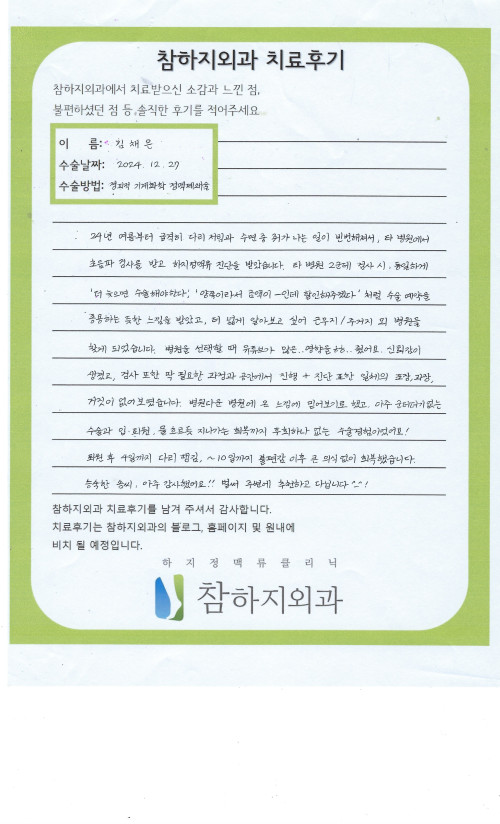 참하지외과 치료후기
참하지외과에서 치료받으신 소감과 느낀 점,
불편하셨던 점 등 솔직한 후기를 적어주세요
이 름: 김채은
수술날짜: 2024. 12. 27
수술방법: 경피적 기계화학 정맥폐쇄술
24년 여름부터 급격히 다리 저림과 수면 중 쥐가 나는 일이 빈번해져서, 타 병원에서
초음파 검사를 받고 하지정맥류 진단을 받았습니다. 타 병원 2군데 검사 시, 동일하게
'더 늦으면 수술해야한다', '양쪽이라서 금액이 ~인데 할인해주겠다' 처럼 수술 예약을
종용하는 듯한 느낌을 받았고, 더 넓게 알아보고 싶어 근무지/주거지 외 병원을
찾게 되었습니다. 병원을 선택할 때 유튜브가 많은.. 영향을 ㅎㅎ.. 줬어요. 신뢰감이
생겼고, 검사 또한 딱 필요한 과정과 공간에서 진행 + 진단 또한 일체의 포장, 과장,
거짓이 없어보였습니다. 병원다운 병원에 온 느낌에 믿어보기로 했고. 아주 군더더기없는
수술과 입·퇴원, 물 흐르듯 지나가는 회복까지 후회하나 없는 수술경험이었어요!
퇴원 후 4일까지 다리 땡김, ~10일까지 불편감 이후 큰 의식없이 회복했습니다.
능숙한 솜씨, 아주 감사했어요!! 벌써 주변에 추천하고 다닙니다 ^^!
참하지외과 치료후기를 남겨 주셔서 감사합니다.
치료후기는 참하지외과의 블로그, 홈페이지 및 원내에
비치 될 예정입니다.
하지정맥류클리닉
참하지외과